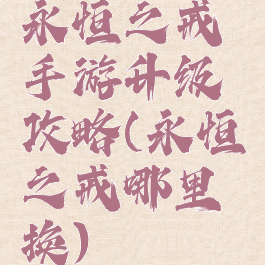 永恒之戒
手游升级
攻略(永恒
之戒哪里
换)